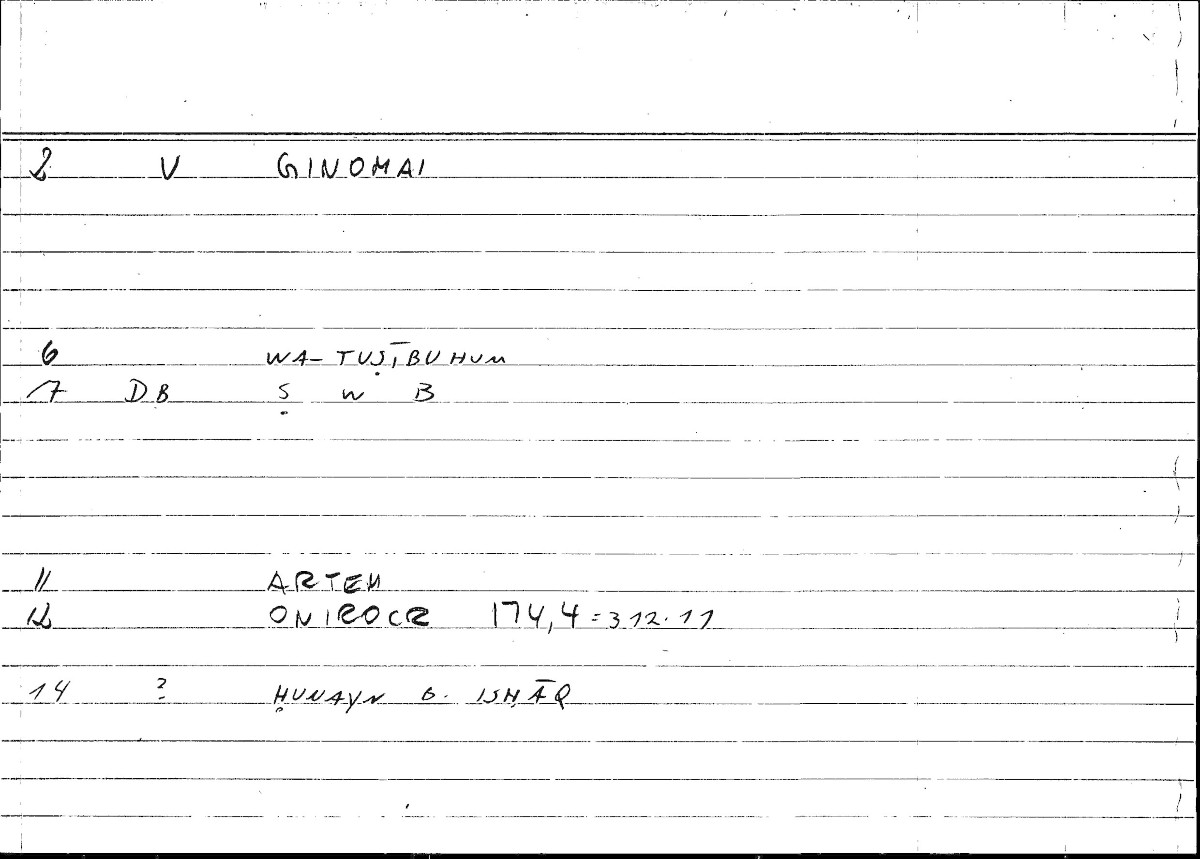 2 V GINOMAI
6 WA-TUṢĪBUHUM
7 DB Ṣ W B
11 ARTEM
12 ONIROCR 174,4 = 312.11
14 ? ḤUNAYN B. ISḤĀQ